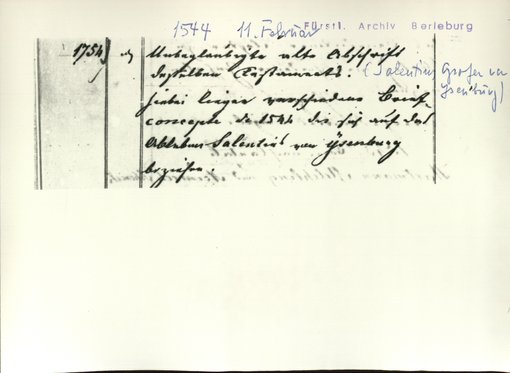 1544 11. Februar Fürstl. Archiv Berleburg
1754 Unbeglaubigte alte Abschrift
desselben Testaments.
(Salentin Grafen von
Ysenburg)
hiebei liegen verschiedene Brief-
concepte de 1544 die sich auf das
Ableben Salentins von Ysenburg
beziehen